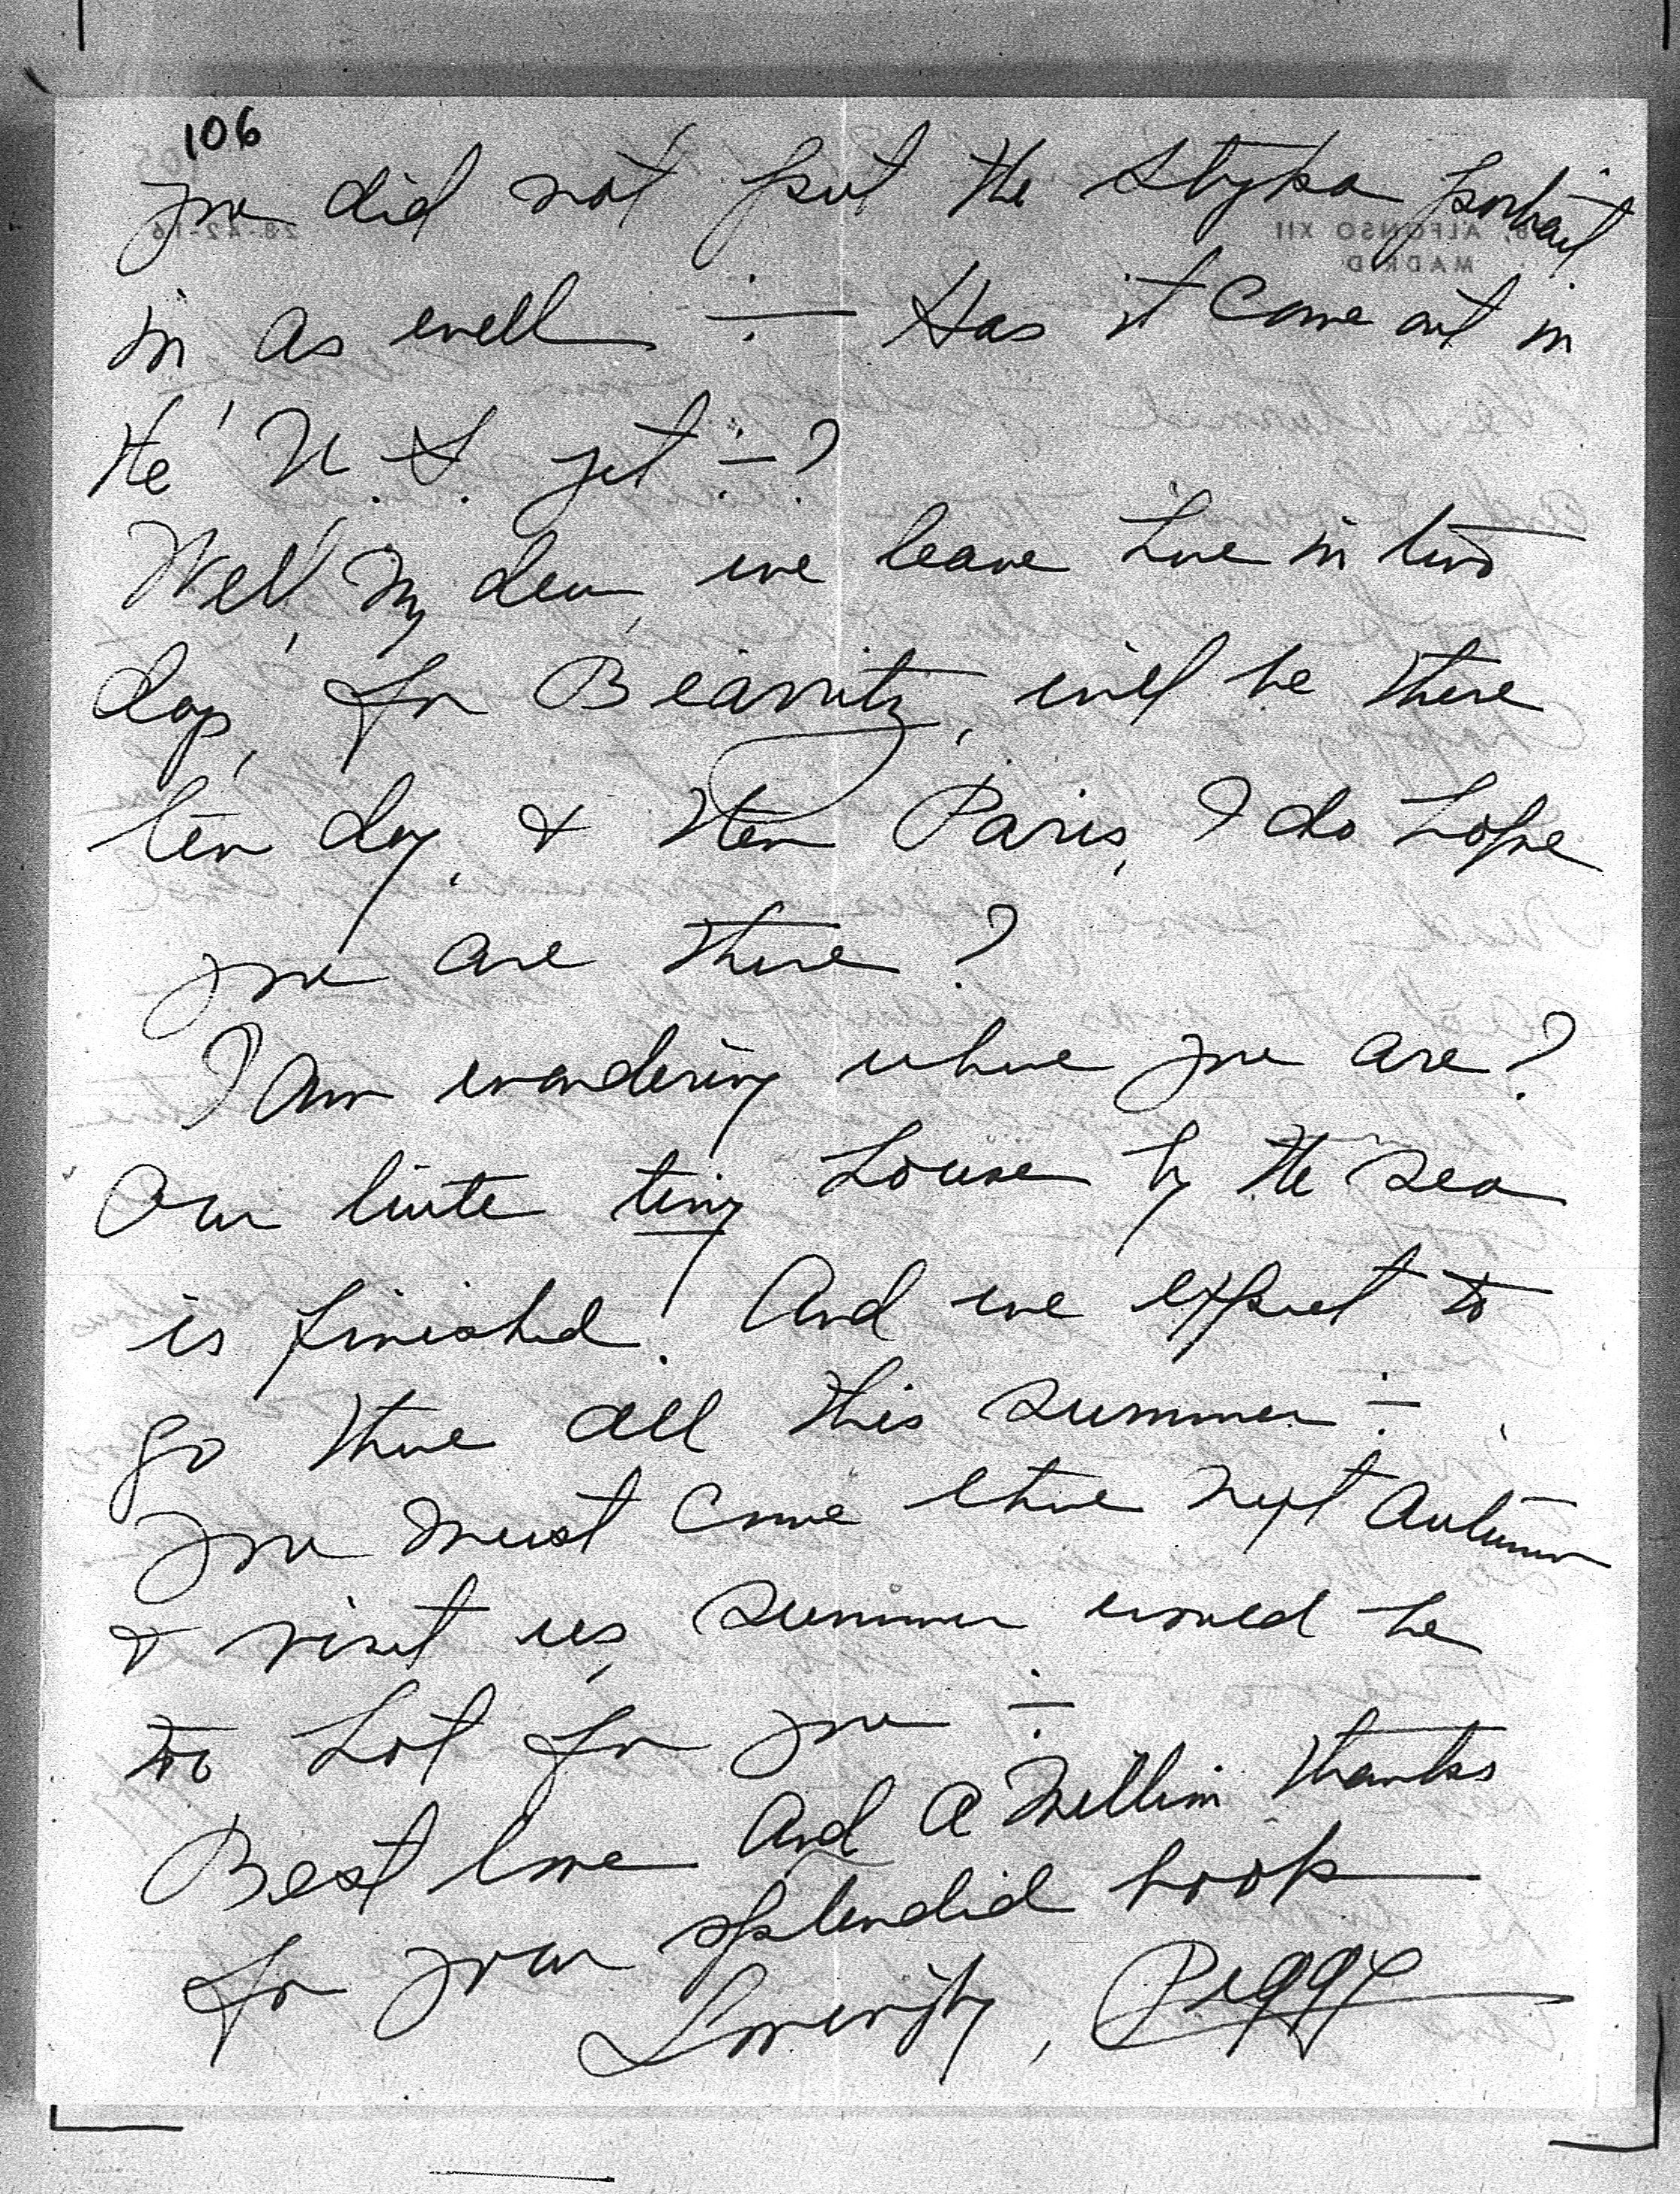 106
you did not put the Styka portrait
in as well ÷ Has it come out in
the U.S. yet ÷?
Well, my dear, we leave here in two
days, for Biarritz, will be there
ten days, & then Paris, I do hope
you are there?
I am wondering where you are?
Our little tiny house by the sea
is finished! And we expect to
go there all this summer ÷
You must come there next Autumn
& visit us, summer would be
too hot for you ÷
Best love and a million thanks
for your splendid book
Lovingly, Peggy
28-22-16
ALFONSO XII
MADRID